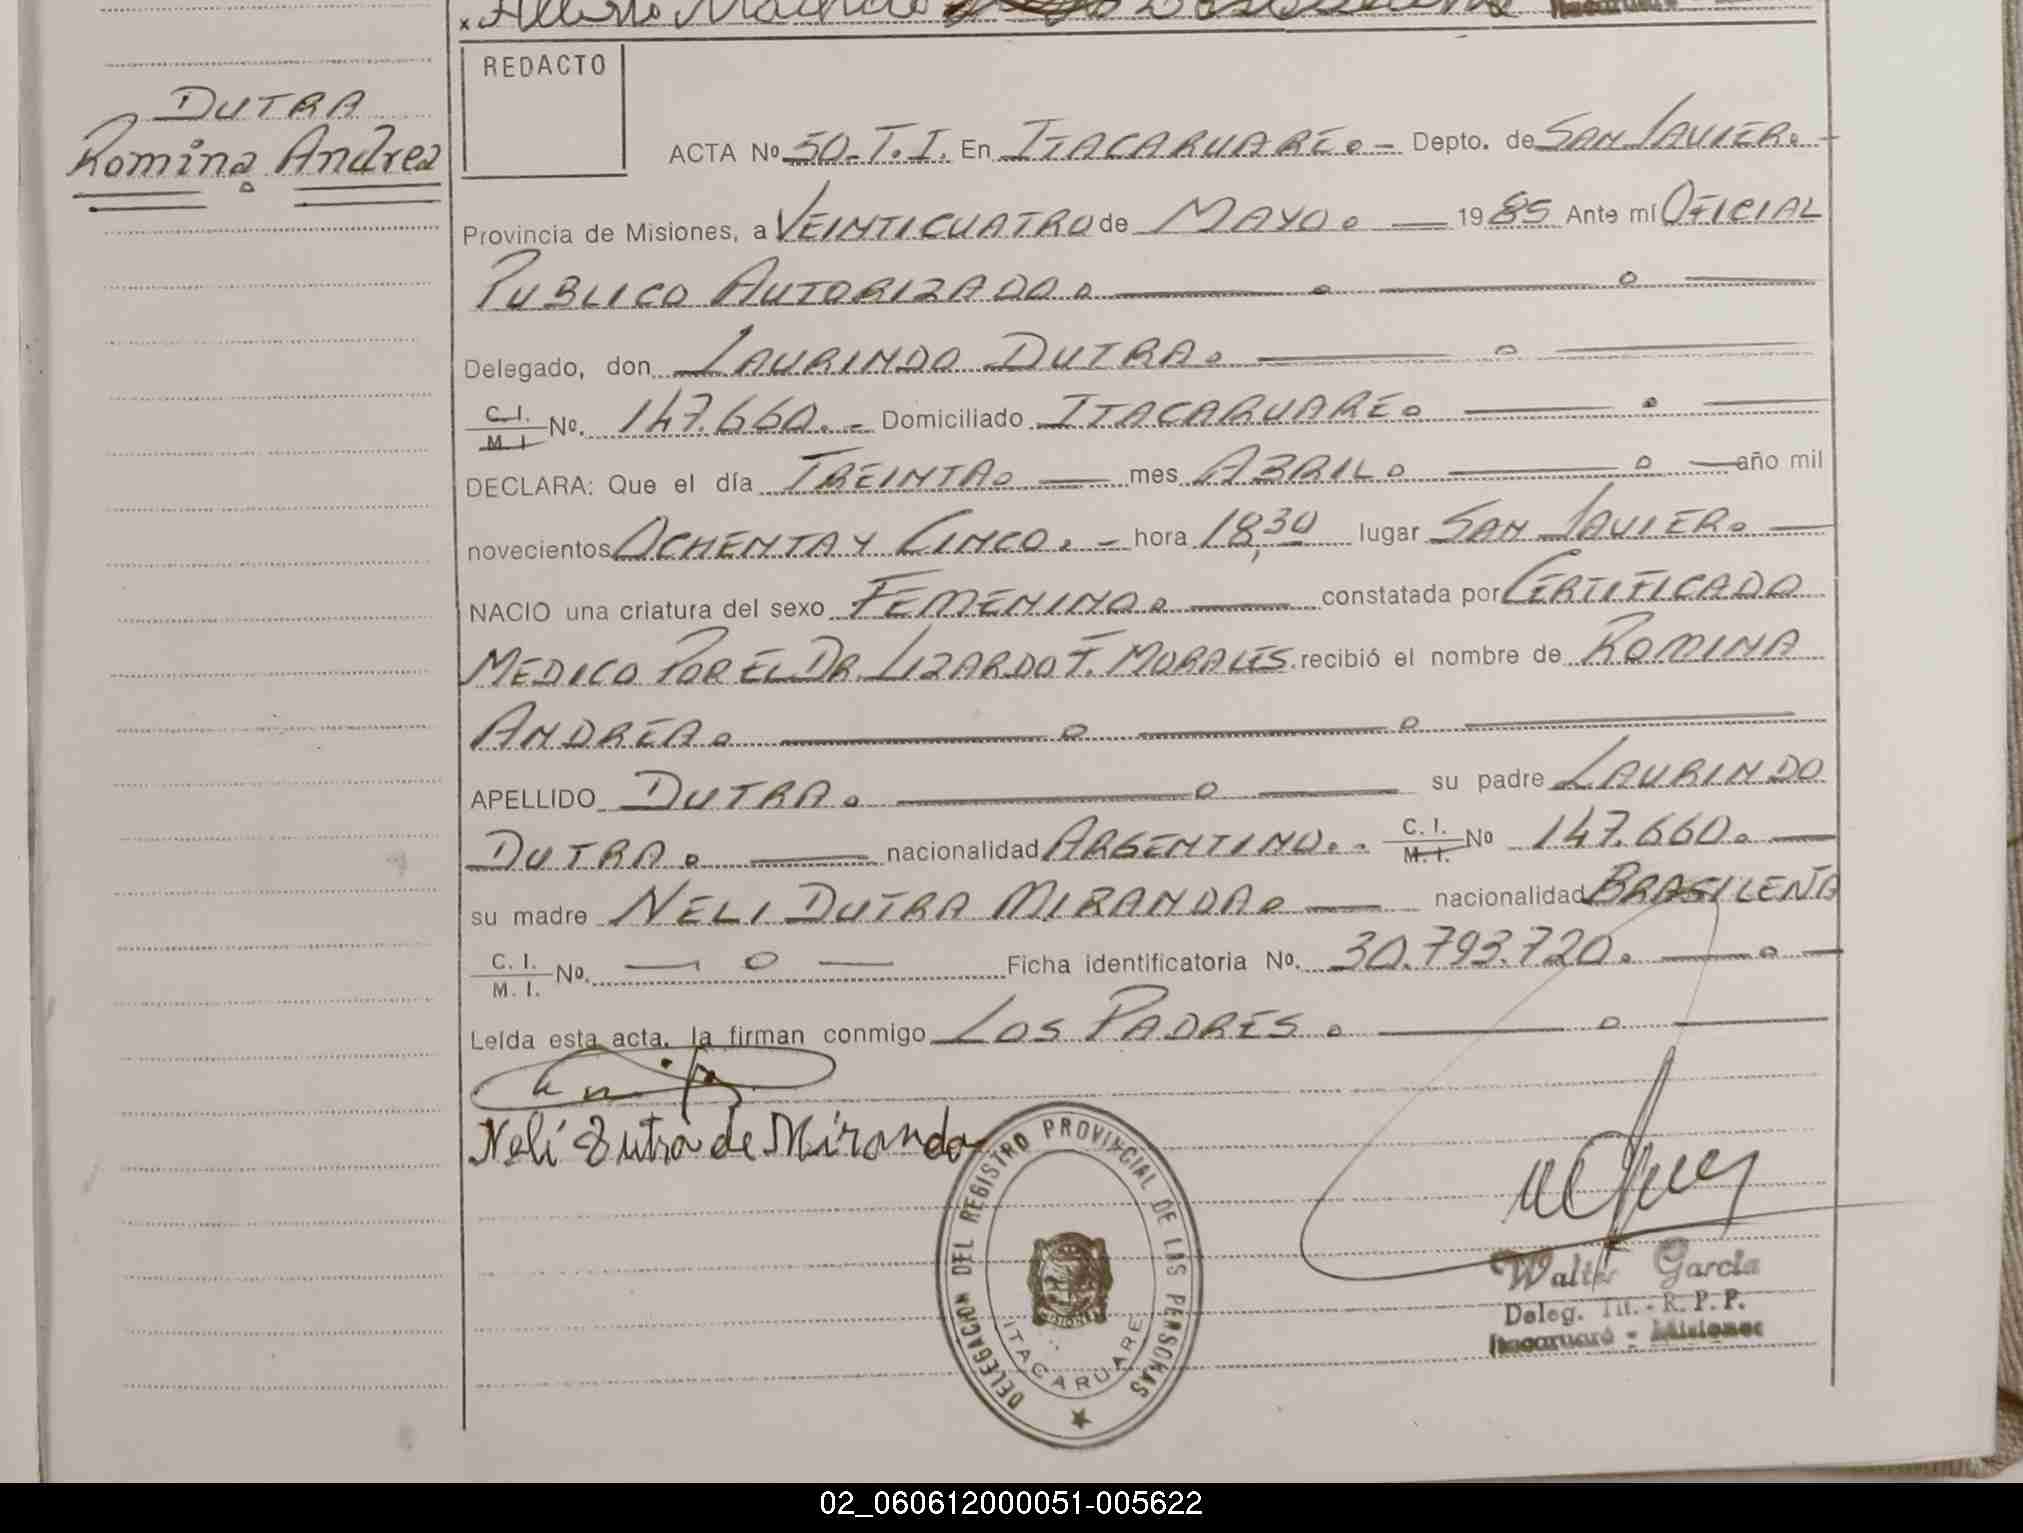 DUTRA
Romina Andrea
REDACTO
ACTA Nº 50.T.I. En ITACARUARE.- Depto. de SAN JAVIER.-
Provincia de Misiones, a VEINTICUATRO de MAYO. — 1985 Ante mí OFICIAL
PUBLICO AUTORIZADO.
Delegado, don LAURINDO DUTRA.
C. I. / M. I. Nº. 147.660.- Domiciliado ITACARUARE.
DECLARA: Que el día TREINTA. — mes ABRIL. — o — año mil
novecientos OCHENTA Y CINCO. - hora 18,30 lugar SAN JAVIER. —
NACIO una criatura del sexo FEMENINO. — constatada por CERTIFICADO
MEDICO POR EL DR. LIZARDO F. MORALES. recibió el nombre de ROMINA
ANDREA.
APELLIDO DUTRA. — o — su padre LAURINDO
DUTRA. — nacionalidad ARGENTINO.- C. I. / M. I. Nº 147.660. —
su madre NELI DUTRA MIRANDA. — nacionalidad BRASILEÑA
C. I. / M. I. Nº. — o — Ficha identificatoria Nº. 30.793.720. — o —
Leída esta acta, la firman conmigo LOS PADRES. — o —
Neli Dutra de Miranda
DELEGACION DEL REGISTRO PROVINCIAL DE LAS PERSONAS
MISIONES
ITACARUARE
Walter García
Deleg. Tit. - R. P. P.
Itacaruaré - Misiones
02_060612000051-005622